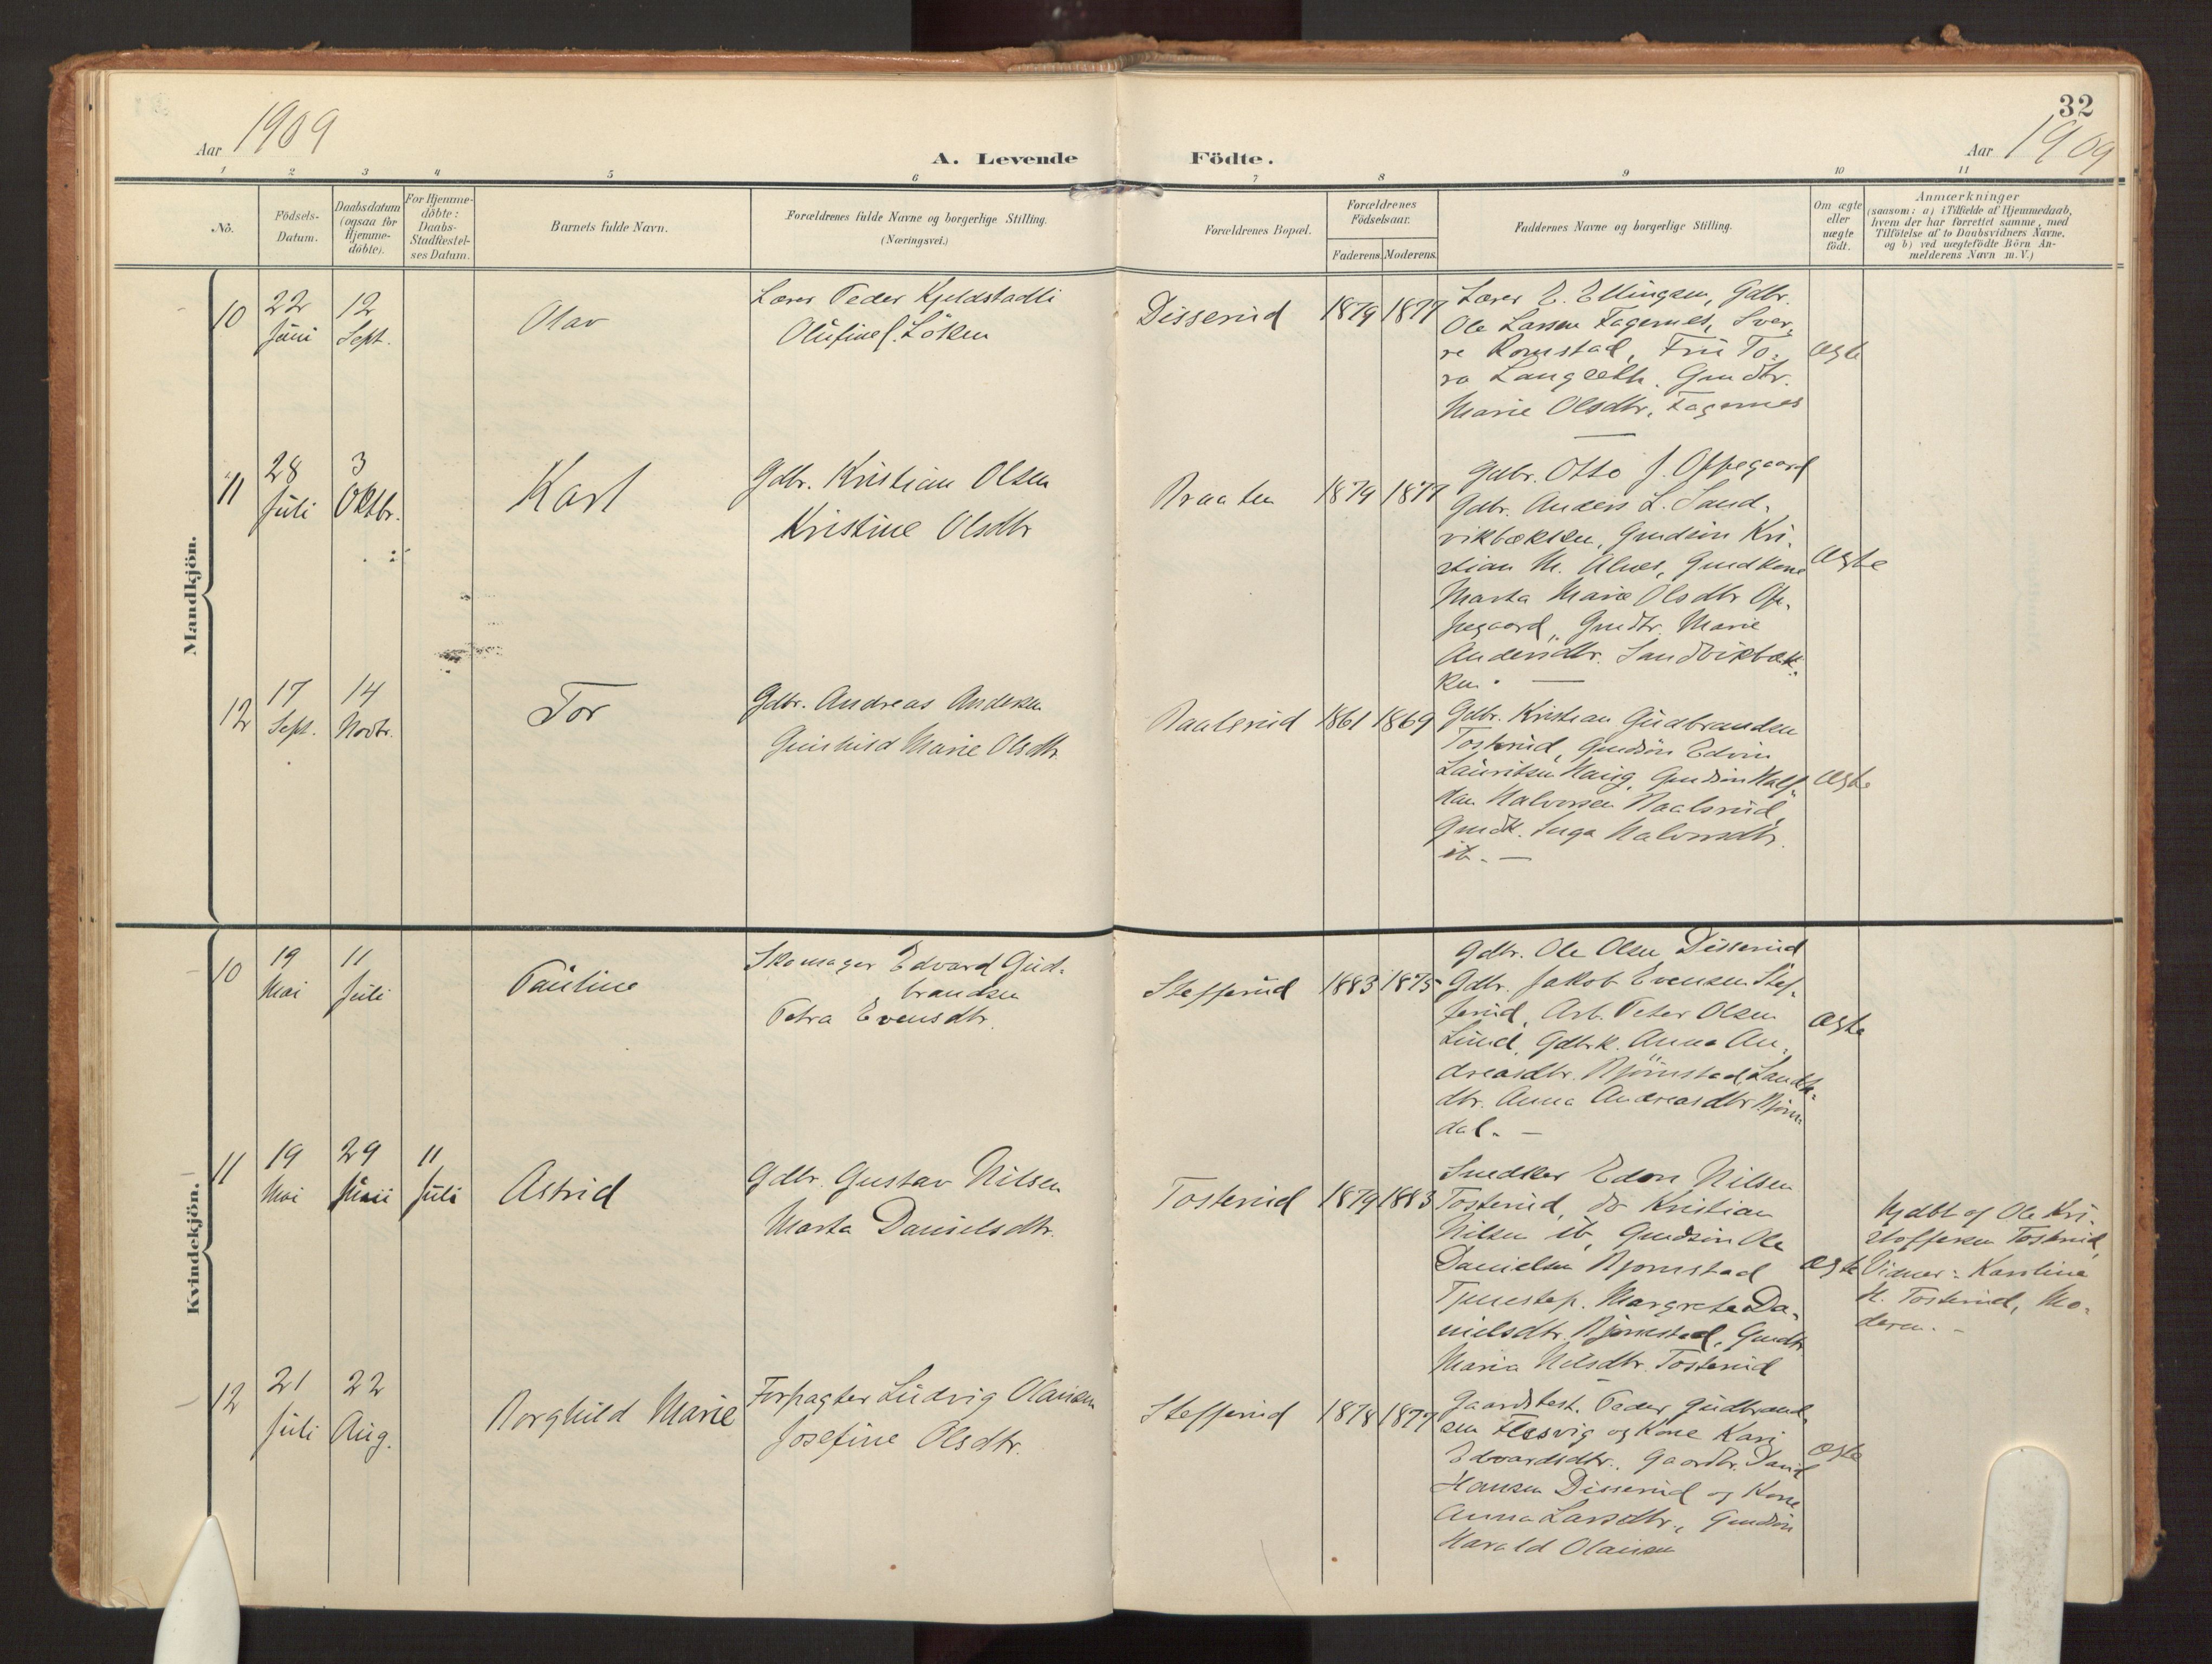 32
Aar 1909
A. Levende Födte.
Aar 1909
1 2 3 4 5 6 7 8 9 10 11
Nô.
Födsels-
Datum.
Daabsdatum
(ogsaa for
Hjemme-
döbte).
For Hjemme-
döbte:
Daabs-
Stadfæstel-
ses Datum.
Barnets fulde Navn.
Forældrenes fulde Navne og borgerlige Stilling.
(Næringsvei.)
Forældrenes Bopæl.
Forældrenes
Födselsaar.
Faderens. Moderens.
Faddernes Navne og borgerlige Stilling.
Om ægte
eller
uægte
födt.
Anmærkninger
(saasom: a) i Tilfælde af Hjemmedaab,
hvem der har forrettet samme, med
Tilföielse af to Daabsvidners Navne,
og b) ved uægtefödte Börn An-
melderens Navn m. V.)
Mandkjön.
10
22
Juni
12
Sept.
Olav
Lærer Peder Kjeldstadli
Olufine f. Löken
Disserud
1879 1877
Lærer E. Ellingsen, Gdbr.
Ole Larsen Fagernes, Sver-
re Romstad, Fru To-
ra Langseth. Gmdtr.
Marie Olsdtr. Fagernes
ægte
11
28
Juli
3
Oktbr.
Karl
Gdbr. Kristian Olsen
Kristine Olsdtr
Braaten
1879 1877
Gdbr. Otto J. Oppegaard
Gdbr. Anders L. Sand-
vikbækken, Gmdsön Kri-
stian M. Alnes, Gmdkone
Marta Marie Olsdtr Op-
pegaard, Gmdtr. Marie
Andersdtr. Sandvikbæk-
ken. —
ægte
12
17
Sept.
14
Novbr.
Tor
Gdbr. Andreas Andersen
Gunhild Marie Olsdtr.
Naalsrud
1861 1869
Gdbr. Kristian Gudbrandsen
Tosterud, Gmdsön Edvin
Lauritsen Haug, Gmdsön Half-
dan Halvorsen Naalsrud,
Gmdk. Inga Halvorsdtr.
ib. —
ægte
Kvindekjön.
10
19
Mai
11
Juli
Pauline
Skomager Edvard Gud-
brandsen
Petra Evensdtr.
Stefferud
1883 1875
Gdbr. Ole Olsen Disserud
Gdbr. Jakob Evensen Stef-
ferud, Arb. Peter Olsen
Lund, Gdbrk. Anna An-
dreasdtr. Björnstad,
dtr. Anna Andreasdtr Björn-
dal. —
ægte
11
19
Mai
29
Juni
11
Juli
Astrid
Gdbr. Gustav Nilsen
Marta Danielsdtr.
Tosterud
1879 1883
Snedker Edon Nilsen
Tosterud, do Kristian
Nilsen ib, Gmdsön Ole
Danielsen Bjornstad
Tjenestep. Margrete Da-
nielsdtr. Björnstad, Gmdtr.
Maria Nilsdtr. Tosterud
ægte
Hjdbt af Ole Kri-
stoffersen Tosterud,
Vidner: Karoline
H. Tosterud, Mo-
deren. —
12
21
Juli
22
Aug.
Borghild Marie
Forpagter Ludvig Olausen
Josefine Olsdtr.
Stefferud
1878 1877
Gaardbest. Peder Gudbrand-
sen Flesvig og Kone Kari
Edvardsdtr., Gaardbr. David
Hansen Disserud og Kone
Anna Larsdtr., Gmdsön
Harald Olausen
ægte